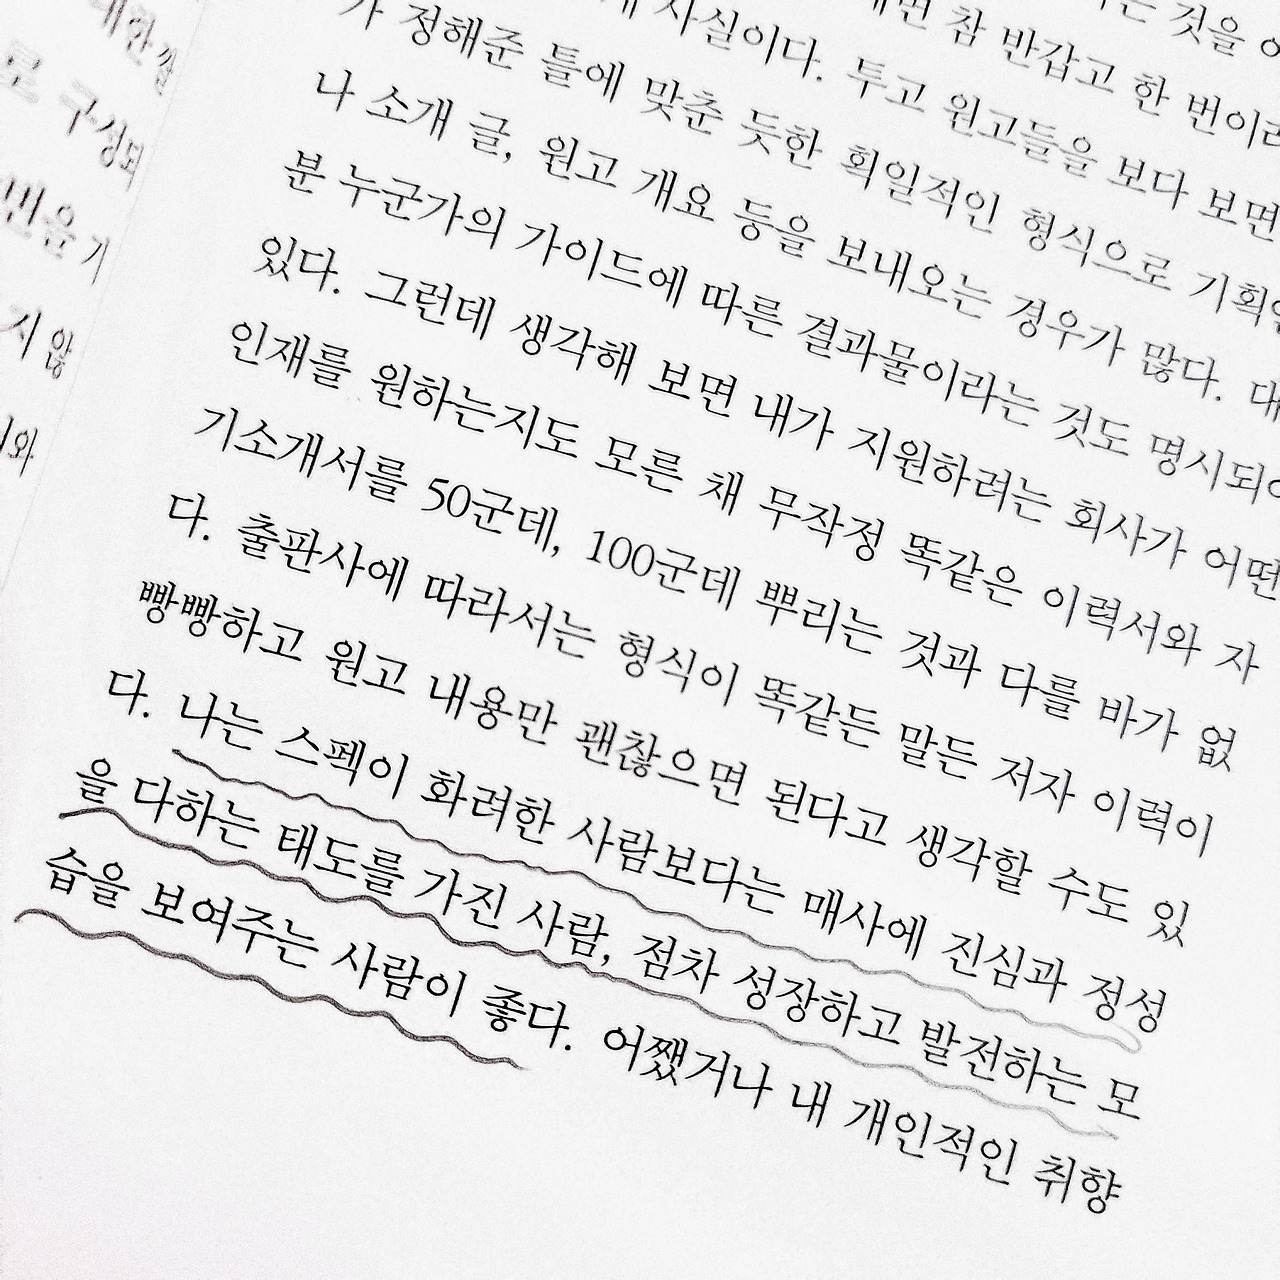 대한
로 구성되
번은
지 않
와
는 것을
사실이다.
면 참 반갑고 한 번이라
가 정해준 틀에 맞춘 듯한 획일적인 형식으로 기획안
투고 원고들을 보다 보면
나 소개 글, 원고 개요 등을 보내오는 경우가 많다. 대
분 누군가의 가이드에 따른 결과물이라는 것도 명시되어
있다. 그런데 생각해 보면 내가 지원하려는 회사가 어떤
인재를 원하는지도 모른 채 무작정 똑같은 이력서와 자
기소개서를 50군데, 100군데 뿌리는 것과 다를 바가 없
다. 출판사에 따라서는 형식이 똑같든 말든 저자 이력이
빵빵하고 원고 내용만 괜찮으면 된다고 생각할 수도 있
다. 나는 스펙이 화려한 사람보다는 매사에 진심과 정성
을 다하는 태도를 가진 사람, 점차 성장하고 발전하는 모
습을 보여주는 사람이 좋다. 어쨌거나 내 개인적인 취향